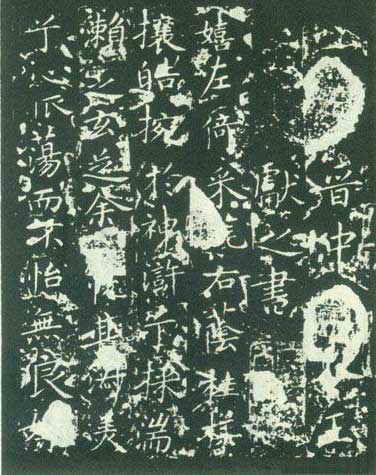 晉中王
獻之書
嬉左倚采旄右蔭桂旗
攘皓捥於神滸兮採湍
瀨之玄芝余其淑美
兮心振蕩而不怡無良